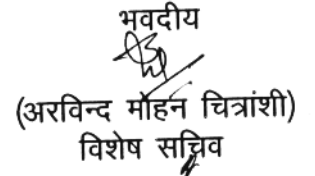 भवदीय
(अरविन्द मोहन चित्रांशी)
विशेष सचिव